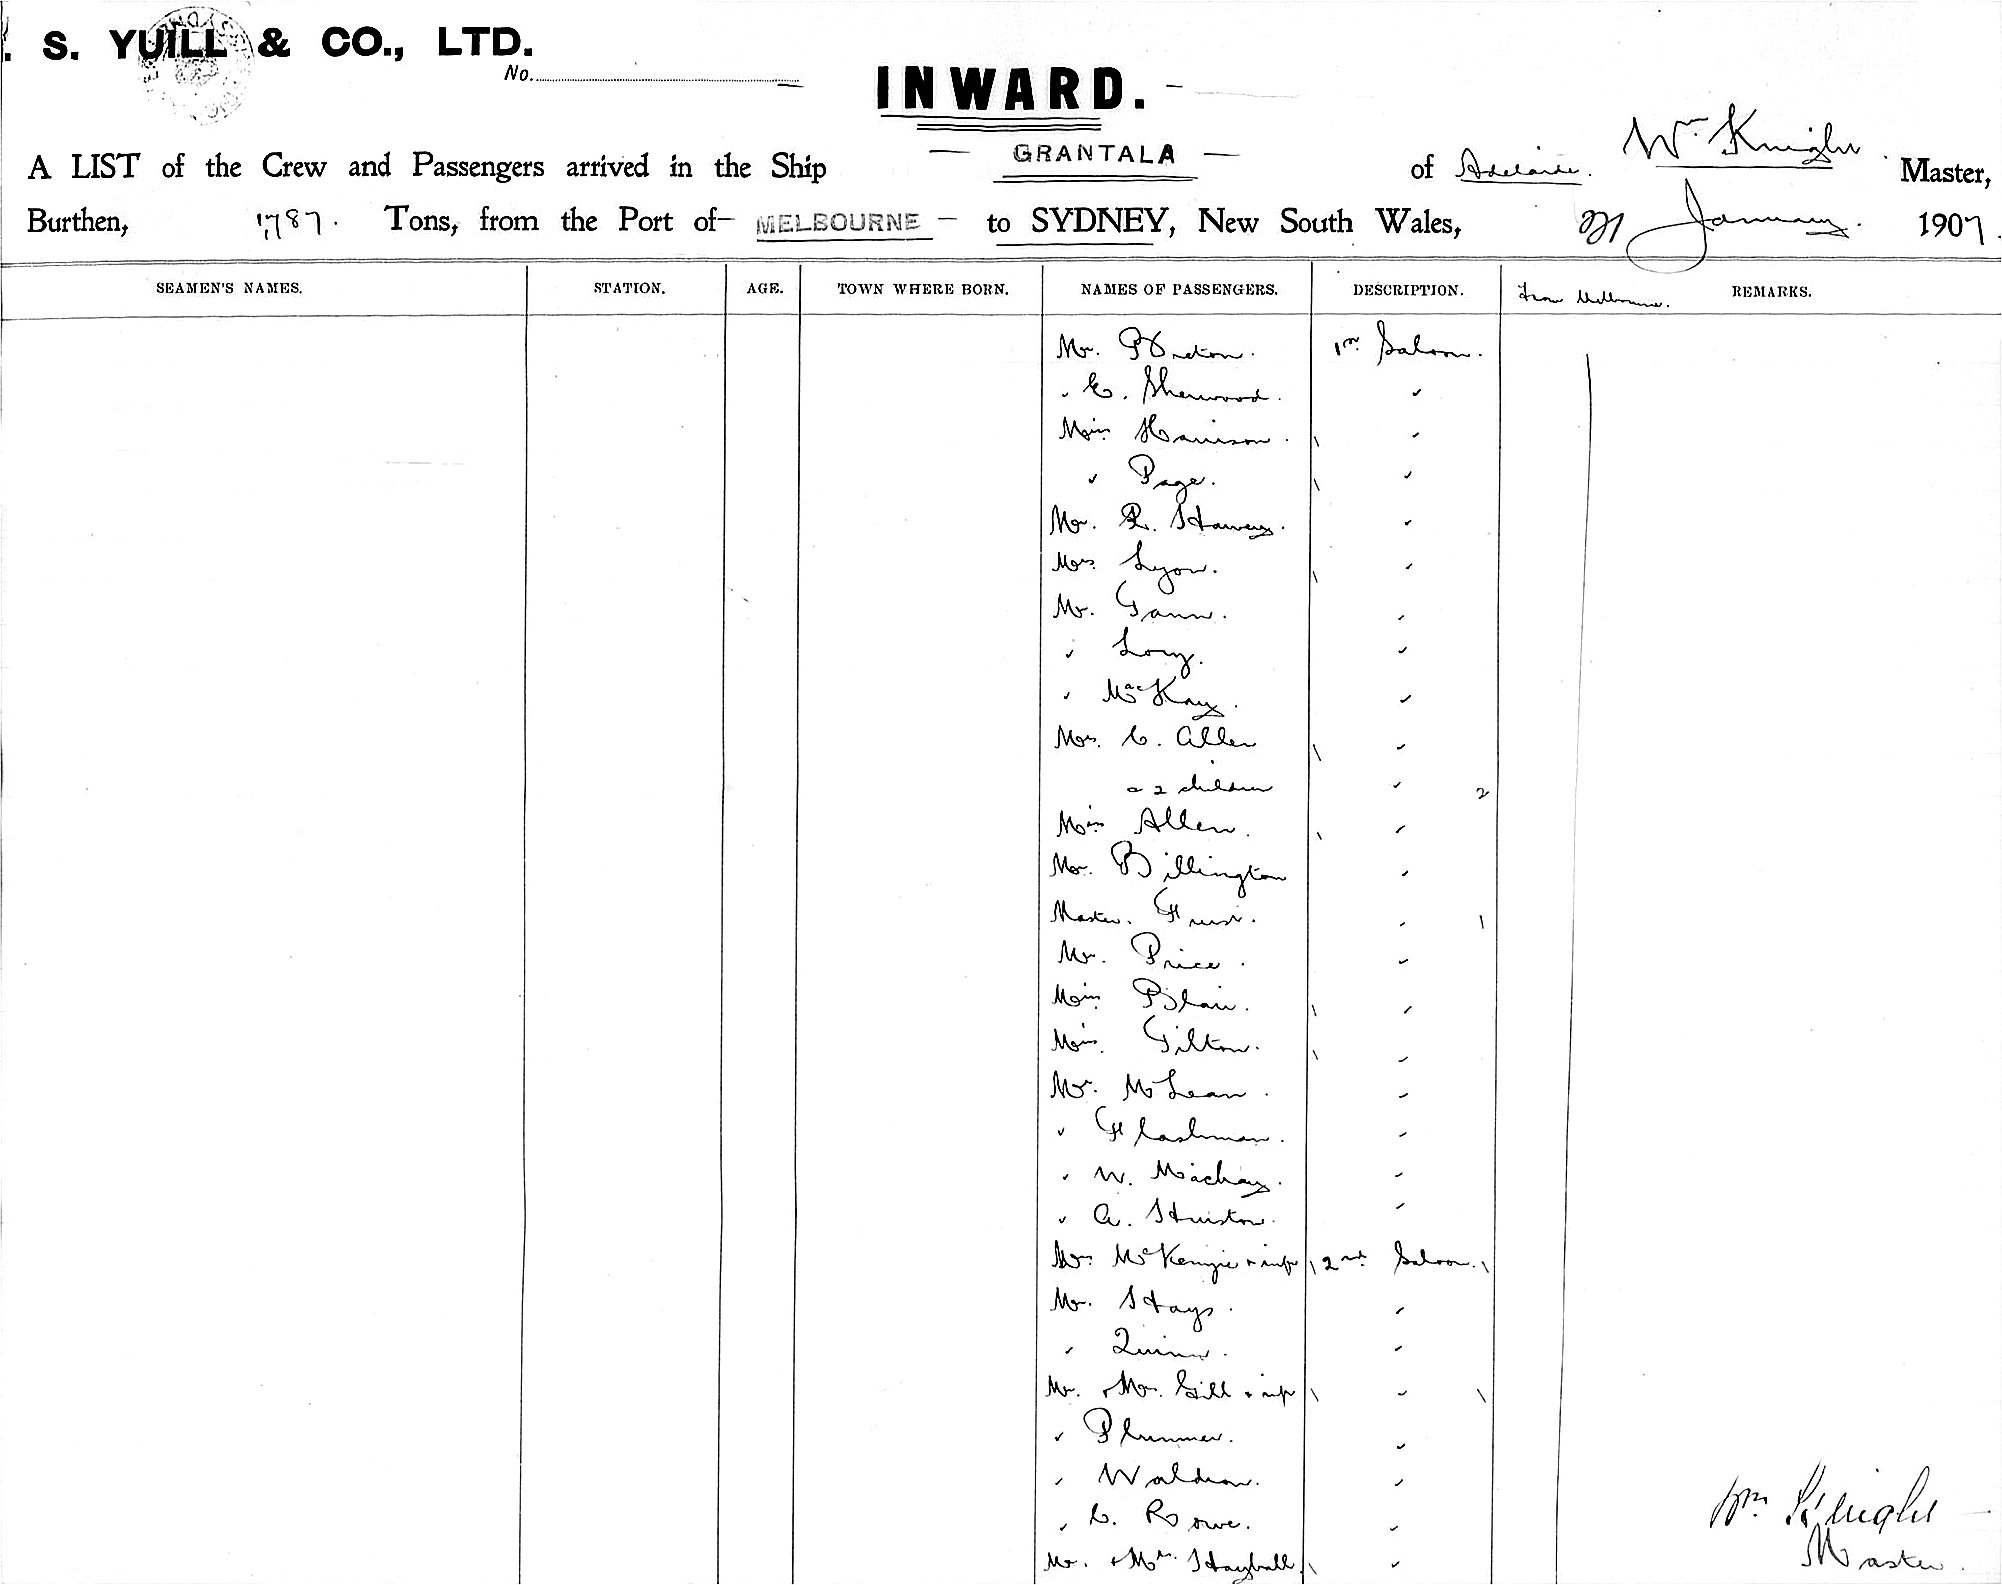 . S. YUILL & CO., LTD.
No.
INWARD.
A LIST of the Crew and Passengers arrived in the Ship GRANTALA of Adelaide. Wm Knight Master,
Burthen, 1,787. Tons, from the Port of MELBOURNE to SYDNEY, New South Wales, January. 1907.
SEAMEN'S NAMES. STATION. AGE. TOWN WHERE BORN. NAMES OF PASSENGERS. DESCRIPTION. From Melbourne. REMARKS.
Mr. 1st Saloon.
" E. Sherwood. "
Miss Harrison. \ "
" Page. \ "
Mr. R. Harvey. "
Mrs Lyon. \ "
Mr. Tann. "
" Long. "
" MacKay. "
Mrs. C. Allen \ "
& 2 children " 2
Miss Allen. \ "
Mr. Billington "
Master. " 1
Mr. Price. "
Miss Blair. \ "
Miss. Tilton. \ "
Mr. McLean. "
" Flashman. "
" W. Mackay. "
" A. Huston. "
Mrs McKenzie & inf \ 2nd Saloon. \
Mr. Hays. "
" Quinn. "
Mr. & Mrs. Gill & inf \ " \
" Plummer. "
" Waldron. "
" C. Rowe. "
Mr. & Mrs. Hayball \ "
Wm Knight
Master.